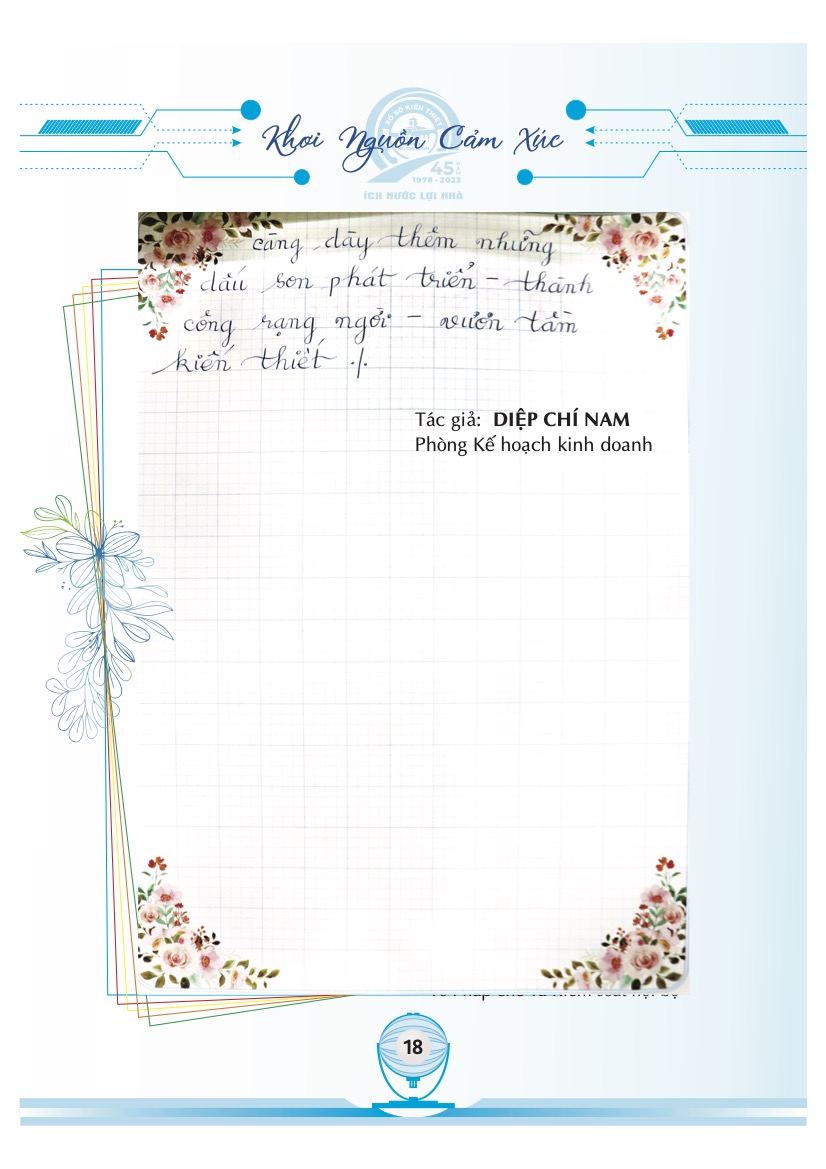 XỔ SỐ KIẾN THIẾT
Khơi Nguồn Cảm Xúc
45 NĂM
1978 - 2023
ÍCH NƯỚC LỢI NHÀ
càng dày thêm những
dấu son phát triển – thành
công rạng ngời – vươn tầm
kiến thiết ./.
Tác giả: DIỆP CHÍ NAM
Phòng Kế hoạch kinh doanh
18